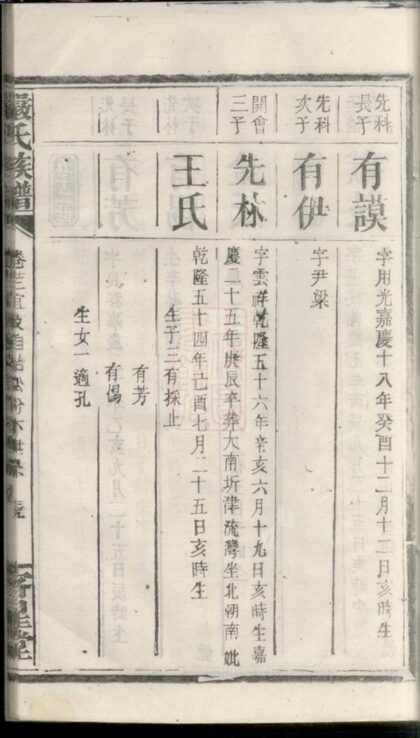 先科長子
有謨
字用光嘉慶十八年癸酉十二月十二日亥時生
先科次子
有伊
字尹梁
開會三子
先林
字雲祥乾隆五十六年辛亥六月十九日亥時生嘉
慶二十五年庚辰卒葬大南圻津流灣坐北朝南妣
王氏
乾隆五十四年己酉七月二十五日亥時生
生子三有採止
有芳
有傷
生女一適孔
嚴氏族譜